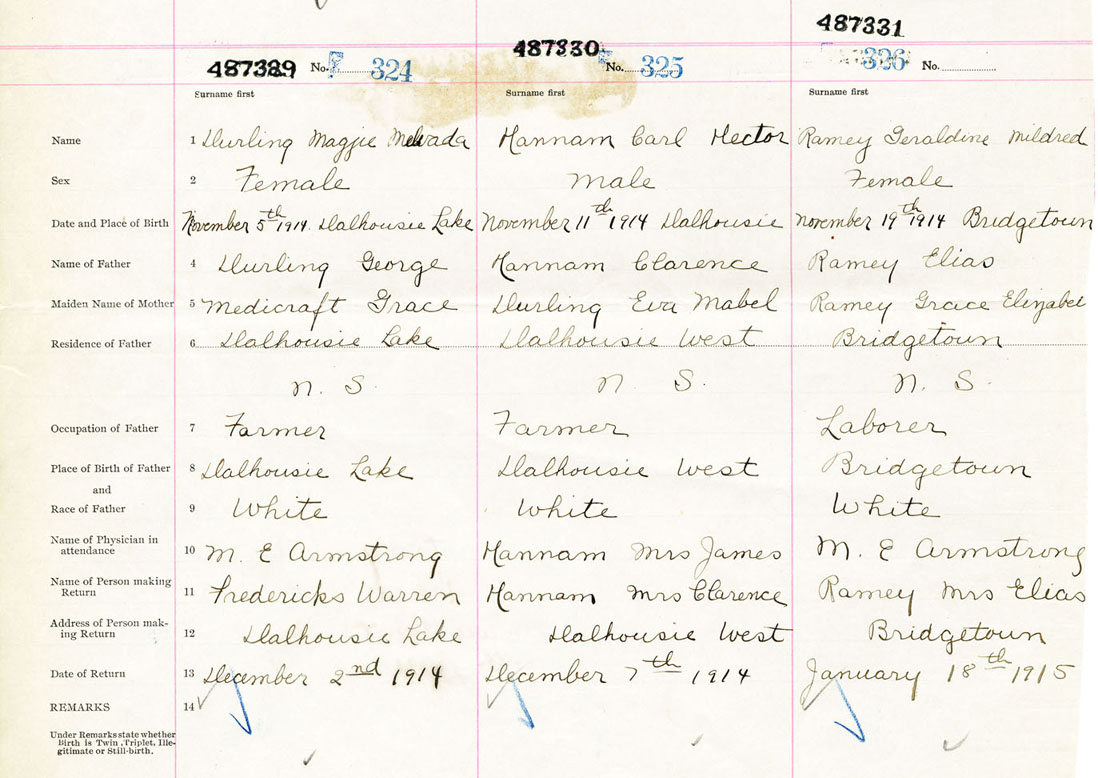 487331
487330
487329 No. 324 No. 325 326 No.
Surname first Surname first Surname first
Name 1 Durling Magjie Melvada Hannam Carl Hector Ramey Geraldine Mildred
Sex 2 Female Male Female
Date and Place of Birth November 5th 1914. Dalhousie Lake November 11th 1914 Dalhousie November 19th 1914 Bridgetown
Name of Father 4 Durling George Hannam Clarence Ramey Elias
Maiden Name of Mother 5 Medicraft Grace Durling Eva Mabel Ramey Grace Elizabet
Residence of Father 6 Dalhousie Lake Dalhousie West Bridgetown
N. S. N. S. N. S.
Occupation of Father 7 Farmer Farmer Laborer
Place of Birth of Father 8 Dalhousie Lake Dalhousie West Bridgetown
and
Race of Father 9 White White White
Name of Physician in
attendance 10 M. E Armstrong Hannam Mrs James M. E Armstrong
Name of Person making
Return 11 Fredericks Warren Hannam Mrs Clarence Ramey Mrs Elias
Address of Person mak-
ing Return 12 Dalhousie Lake Dalhousie West Bridgetown
Date of Return 13 December 2nd 1914 December 7th 1914 January 18th 1915
REMARKS 14
Under Remarks state whether
Birth is Twin, Triplet, Ille-
gitimate or Still-birth.